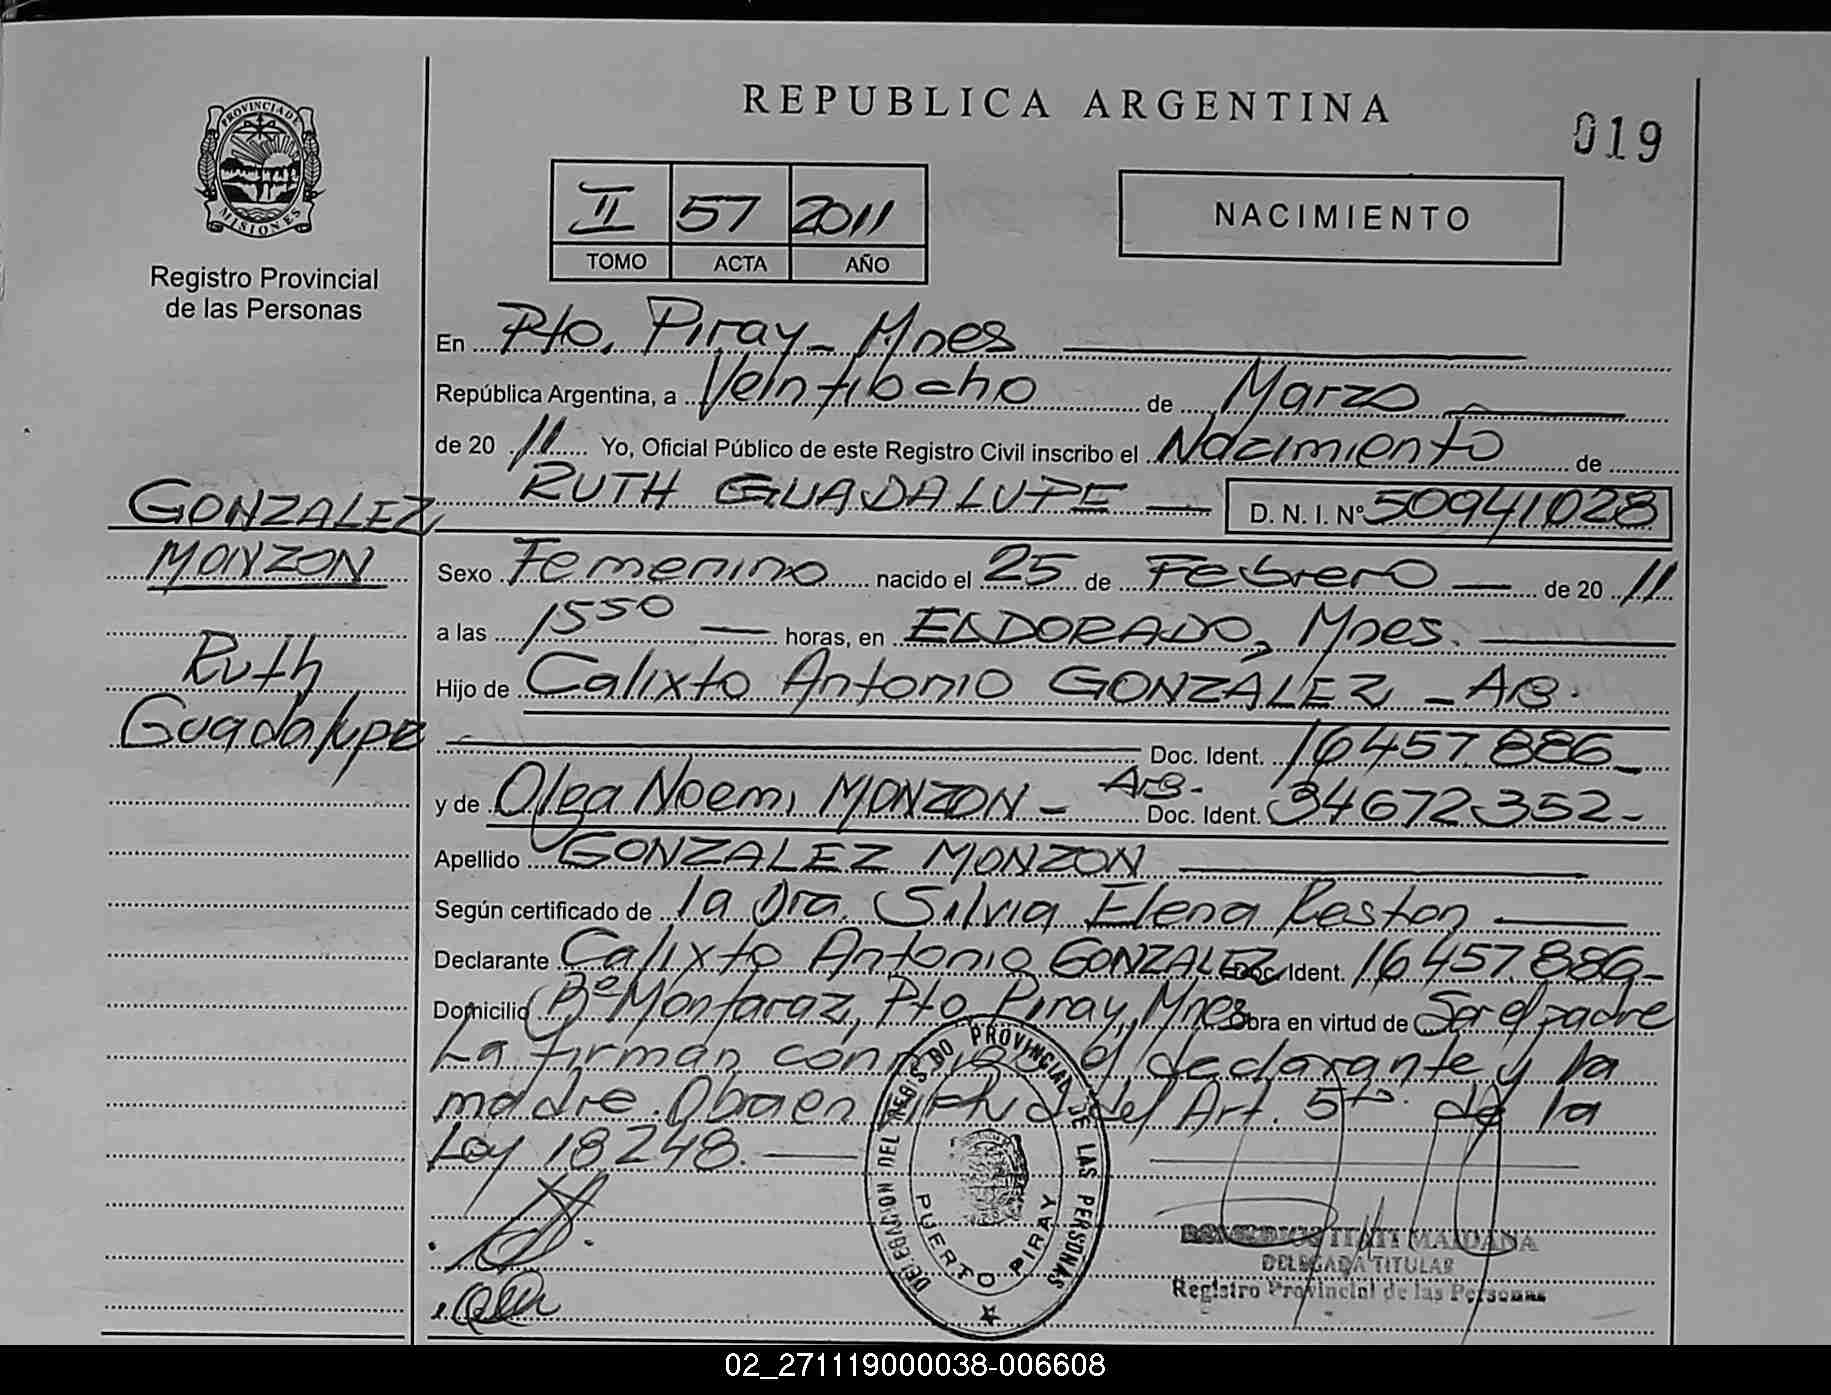 REPUBLICA ARGENTINA
019
PROVINCIA DE MISIONES
Registro Provincial
de las Personas
II 57 2011
TOMO ACTA AÑO
NACIMIENTO
En Pto. Piray - Mnes
República Argentina, a Veintiocho de Marzo
de 20 11 Yo, Oficial Público de este Registro Civil inscribo el Nacimiento de
RUTH GUADALUPE — D. N. I. Nº 50941028
GONZALEZ
MONZON
Ruth
Guadalupe
Sexo Femenino nacido el 25 de Febrero — de 20 11
a las 1550 — horas, en ELDORADO, Mnes.
Hijo de Calixto Antonio GONZÁLEZ - Arg.
Doc. Ident. 16457886-
y de Olga Noemi MONZON - Arg. Doc. Ident. 34672352-
Apellido GONZALEZ MONZON
Según certificado de la Dra. Silvia Elena Reston
Declarante Calixto Antonio GONZALEZ Doc. Ident. 16457886-
Domicilio Bº Montaraz, Pto Piray, Mnes Obra en virtud de Ser el padre
La firman conmigo el declarante y la
madre. Obra en virtud del Art. 5to. de la
Ley 18248.
DELEGACION DEL REGISTRO PROVINCIAL DE LAS PERSONAS
PUERTO PIRAY
ITATI MAIDANA
DELEGADA TITULAR
Registro Provincial de las Personas
02_271119000038-006608